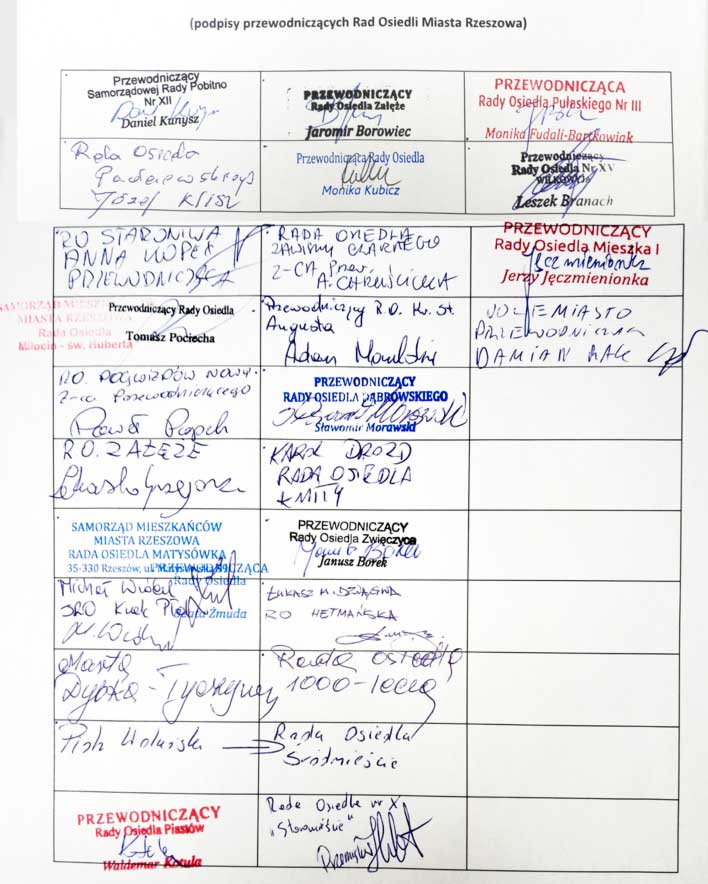 (podpisy przewodniczących Rad Osiedli Miasta Rzeszowa)
Przewodniczący
Samorządowej Rady Pobitno
Nr XII
Daniel Kunysz
PRZEWODNICZĄCY
Rady Osiedla Załęże
Jaromir Borowiec
PRZEWODNICZĄCA
Rady Osiedla Pułaskiego Nr III
Monika Fudali-Bartkowiak
Rada Osiedla
Józef
Przewodnicząca Rady Osiedla
Monika Kubicz
Przewodniczący
Rady Osiedla Nr XV
WILKOWYJA
Leszek Branach
RO STARONIWA
ANNA KOPEĆ
PRZEWODNICZĄCA
RADA OSIEDLA
ZAWISZY CZARNEGO
Z-CA Przew.
PRZEWODNICZĄCY
Rady Osiedla Mieszka I
Jęczmienionka
Jerzy Jęczmienionka
SAMORZĄD MIESZKAŃCÓW
MIASTA RZESZOWA
Rada Osiedla
Miłocin - św. Huberta
Przewodniczący Rady Osiedla
Tomasz Pociecha
Przewodniczący R.O. Kr. St.
Augusta
Adam
PRZEWODNICZĄCY
DAMIAN
RO. POGWIZDÓW NOWY
Z-ca Przewodniczącego
Paweł
PRZEWODNICZĄCY
RADY OSIEDLA DĄBROWSKIEGO
Sławomir Morawski
RO. ZAŁĘŻE
KAROL DROZD
RADA OSIEDLA
KMITY
SAMORZĄD MIESZKAŃCÓW
MIASTA RZESZOWA
RADA OSIEDLA MATYSÓWKA
35-330 Rzeszów, ul. Matysowska
PRZEWODNICZĄCA
Rady Osiedla
Żmuda
PRZEWODNICZĄCY
Rady Osiedla Zwięczyca
Janusz Borek
Michał Wróbel
ŁUKASZ M. DZIĄGWA
RO HETMAŃSKA
Marta
Dybka - Tyczyny
Rada Osiedla
1000-lecia
Piotr
Rada Osiedla
Śródmieście
PRZEWODNICZĄCY
Rady Osiedla Piastów
Waldemar Kotula
Rada Osiedla nr X
Przemysław